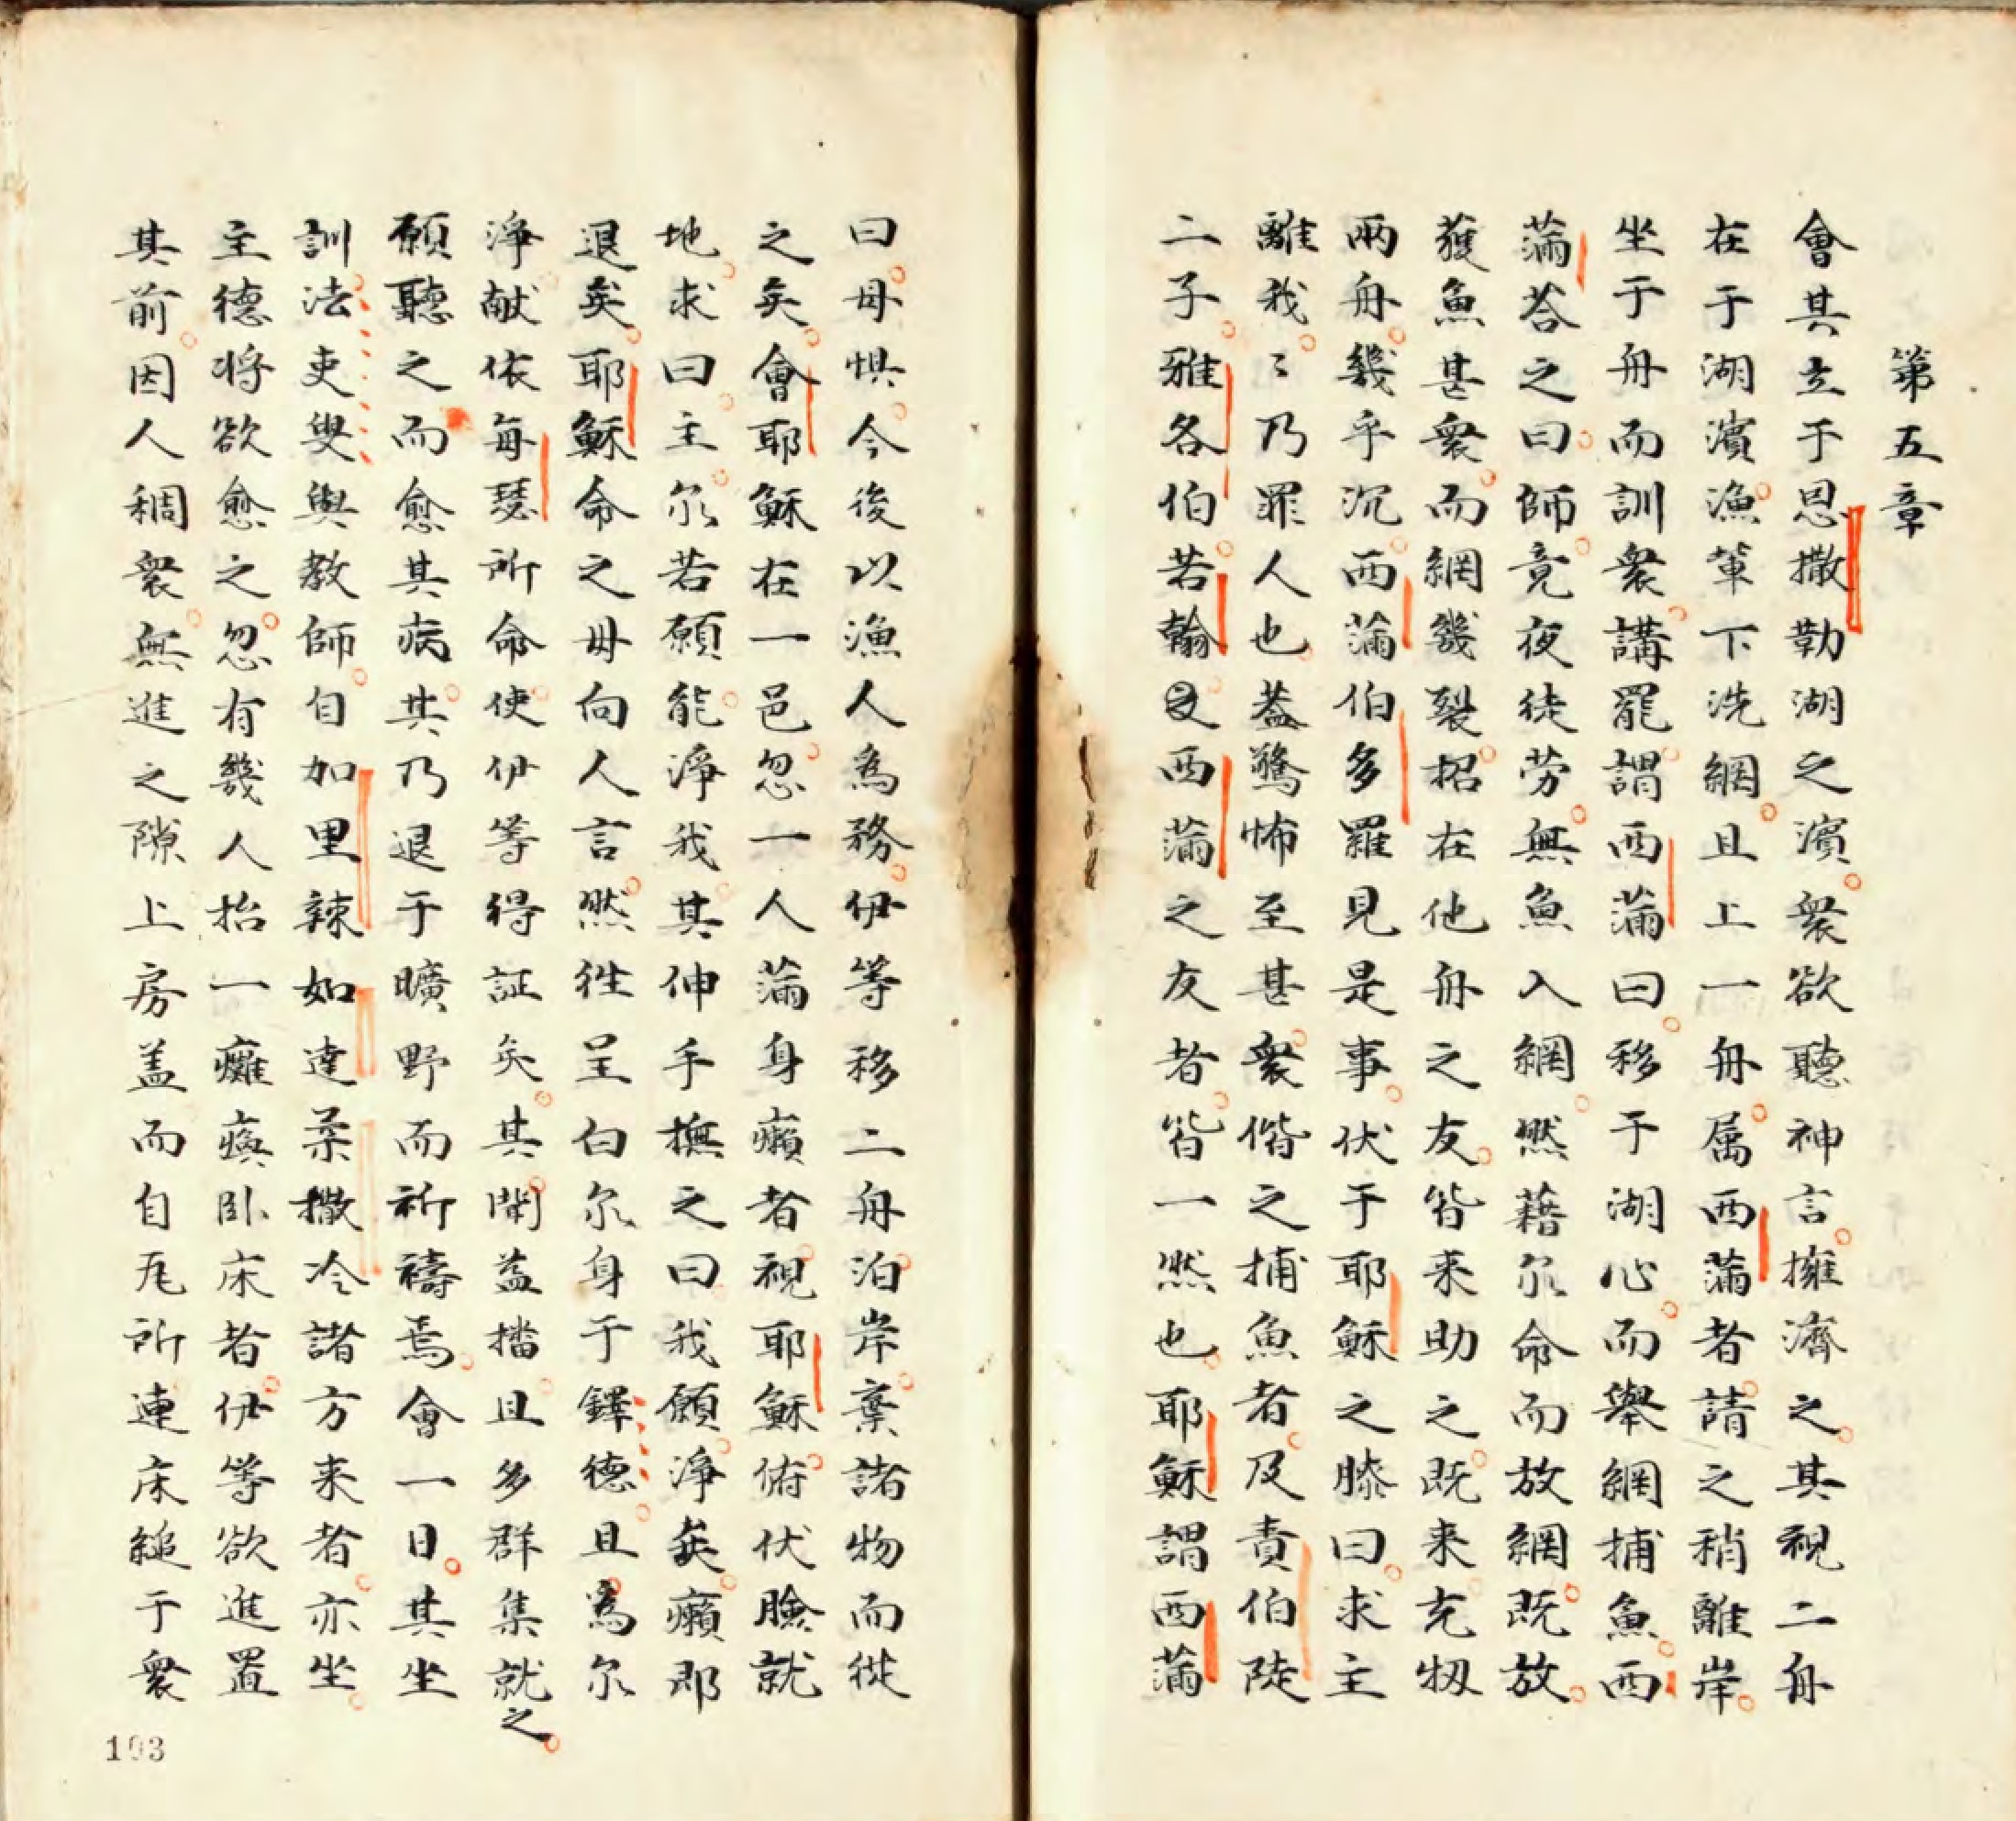 第五章
會其立于恩撒勒湖之濱衆欲聽神言擁濟之其視二舟
在于湖濱漁輩下洗網且上一舟属西蒲者請之稍離岸
坐于舟而訓衆講罷謂西蒲曰移于湖心而舉網捕魚西
蒲荅之曰師竟夜徒劳無魚入網然藉尔命而放網既放
獲魚甚衆而網幾裂招在他舟之友皆来助之既来充牣
兩舟幾乎沉西蒲伯多羅見是事伏于耶穌之膝曰求主
離我〻乃罪人也蓋驚怖至甚衆偕之捕魚者及責伯陡
二子雅各伯若翰又西蒲之友者皆一然也耶穌謂西蒲
曰毋惧今後以漁人為務伊等移二舟泊岸棄諸物而從
之矣會耶穌在一邑忽一人蒲身癩者視耶穌俯伏臉就
地求曰主尔若願能淨我其伸手撫之曰我願淨矣癩即
退矣耶穌命之毋向人言然徃呈白尔身于鐸德且為尔
淨献依每瑟所命使伊等得証矣其聞益播且多群集就之
願聽之而愈其病其乃退于曠野而祈禱焉會一日其坐
訓法吏叟與教師自加里辣如達柔撒冷諸方来者亦坐
主德将欲愈之忽有幾人抬一癱瘓臥床者伊等欲進置
其前因人稠衆無進之隙上房盖而自瓦所連床縋于衆
103